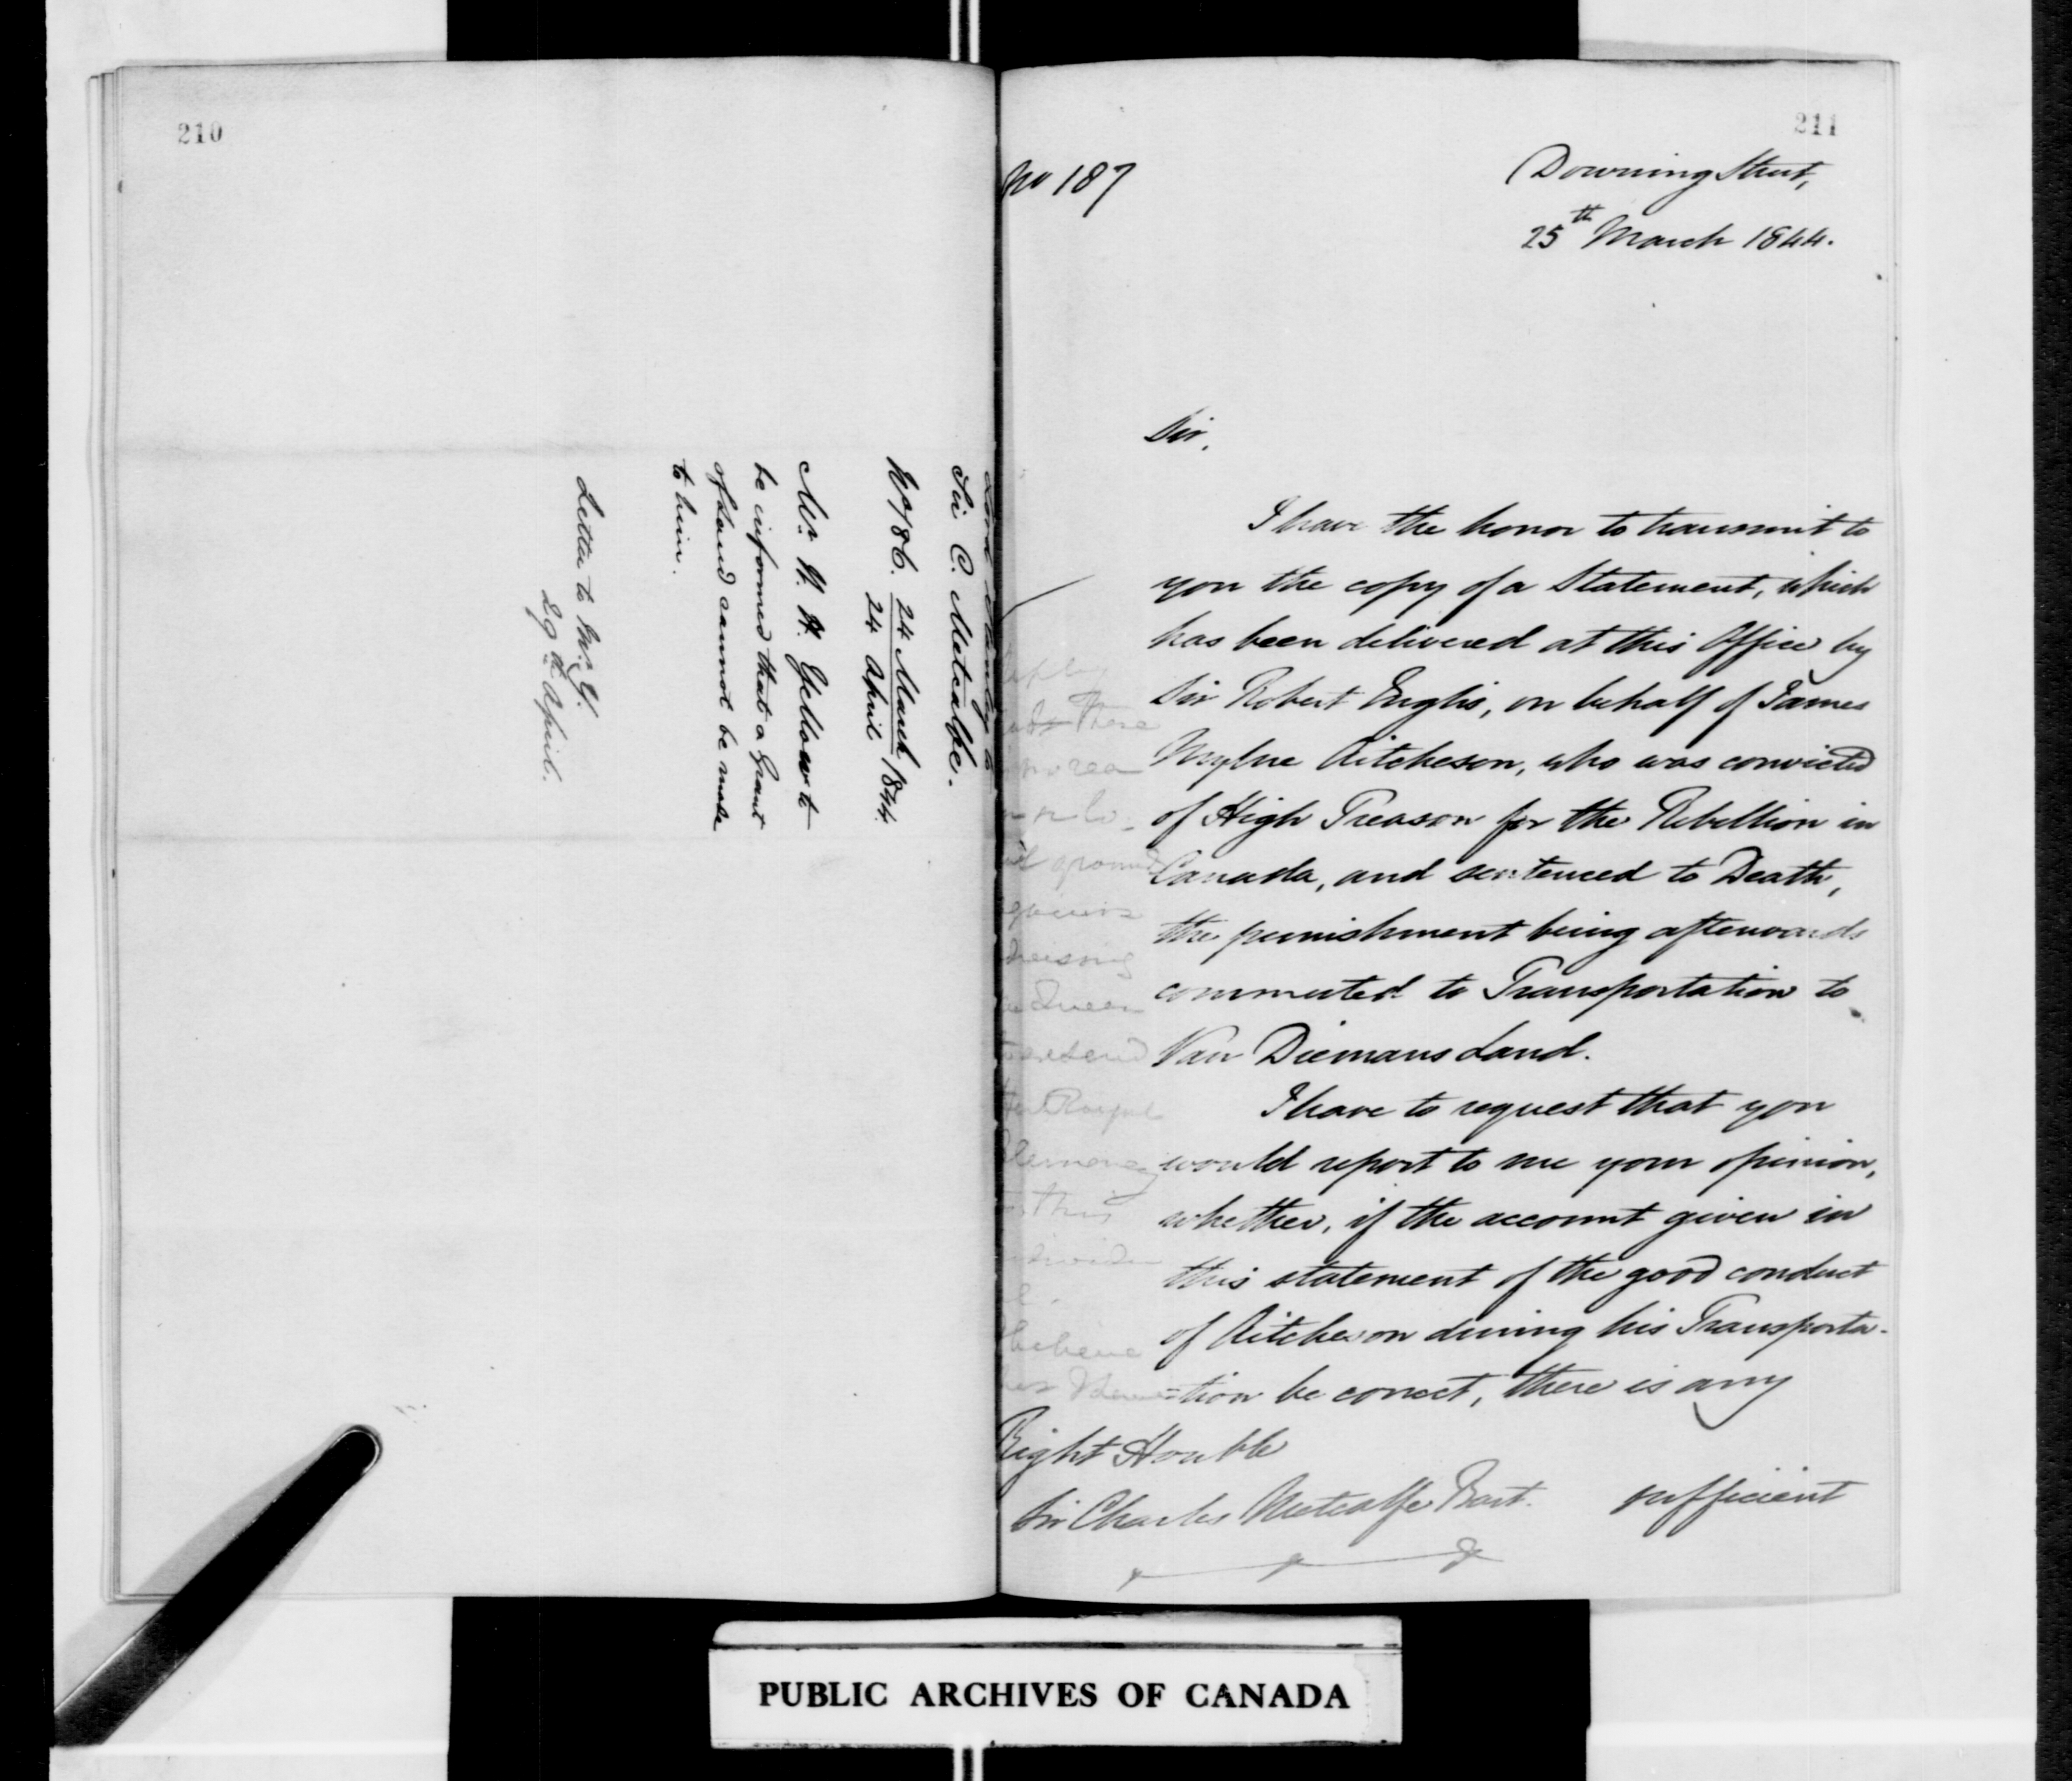 210
Lord Stanley to
Sir C. Metcalfe.
No 186. 24 March / 24 April 1844.
Mr. W. H. Yellow to
be informed that a Grant
of Land cannot be made
to him.
Letter to Mr. Y.
29th April.
211
No 187
Downing Street,
25th March 1844.
Sir,
I have the honor to transmit to
you the copy of a Statement, which
has been delivered at this Office by
Sir Robert Inglis, on behalf of James
Mylne Aitcheson, who was convicted
of High Treason for the Rebellion in
Canada, and sentenced to Death,
the punishment being afterwards
commuted to Transportation to
Van Diemans Land.
I have to request that you
would report to me your opinion,
whether, if the account given in
this statement of the good conduct
of Aitcheson during his Transporta-
=tion be correct, there is any
Right Honble
Sir Charles Metcalfe Bart.
sufficient
there
ground
Queen
extend
Her Royal
Clemency
to this
believe
PUBLIC ARCHIVES OF CANADA